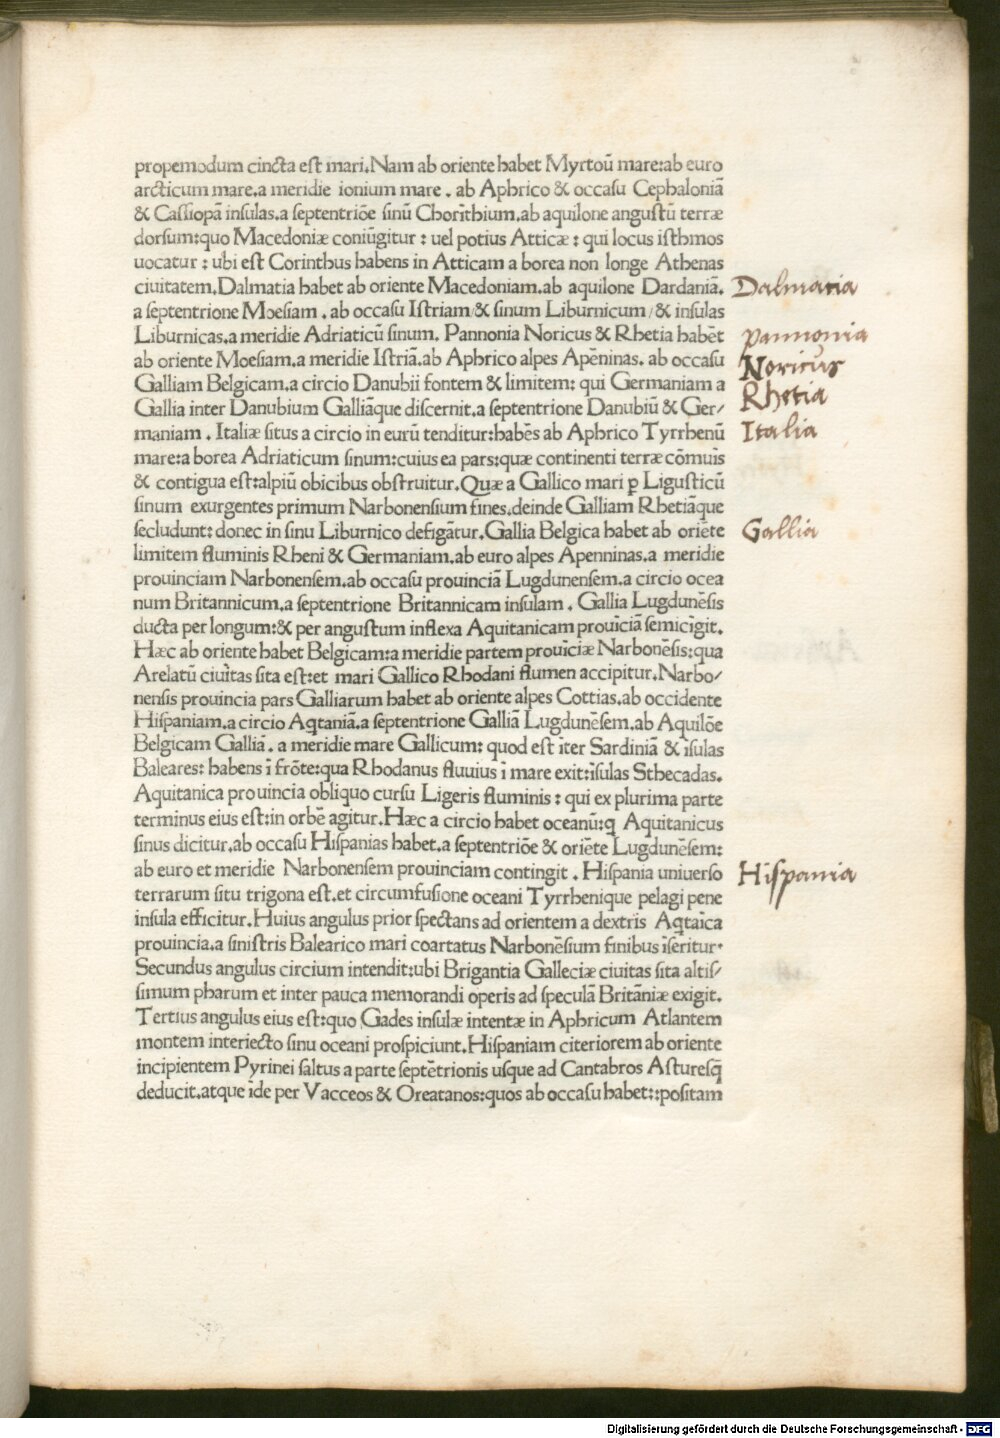 propemodum cincta est mari.Nam ab oriente habet Myrtoū mare:ab euro
arcticum mare.a meridie ionium mare . ab Aphrico & occasu Cephaloniā
& Cassiopā insulas.a septentriōe sinū Chorīthium.ab aquilone angustū terræ
dorsum:quo Macedoniæ coniūgitur : uel potius Atticæ : qui locus isthmos
uocatur : ubi est Corinthus habens in Atticam a borea non longe Athenas
ciuitatem.Dalmatia habet ab oriente Macedoniam.ab aquilone Dardaniā.
Dalmatia
a septentrione Moesiam . ab occasu Istriam/& sinum Liburnicum/& insulas
Liburnicas.a meridie Adriaticū sinum. Pannonia Noricus & Rhetia habēt
pannonia
ab oriente Moesiam.a meridie Istriā.ab Aphrico alpes Apēninas. ab occasu
Noricus
Galliam Belgicam.a circio Danubii fontem & limitem: qui Germaniam a
Rhetia
Gallia inter Danubium Galliāque discernit.a septentrione Danubiū & Ger/
maniam . Italiæ situs a circio in eurū tenditur:habēs ab Aphrico Tyrrhenū
Italia
mare:a borea Adriaticum sinum:cuius ea pars:quæ continenti terræ cōmuīs
& contigua est:alpiū obicibus obstruitur.Quæ a Gallico mari ꝑ Ligusticū
sinum exurgentes primum Narbonensium fines.deinde Galliam Rhetiāque
secludunt: donec in sinu Liburnico defigātur.Gallia Belgica habet ab oriēte
Gallia
limitem fluminis Rheni & Germaniam.ab euro alpes Apenninas.a meridie
prouinciam Narbonensem.ab occasu prouinciā Lugdunensem.a circio ocea
num Britannicum.a septentrione Britannicam insulam . Gallia Lugdunēsis
ducta per longum:& per angustum inflexa Aquitanicam prouīciā semicīgit.
Hæc ab oriente habet Belgicam:a meridie partem prouīciæ Narbonēsis:qua
Arelatū ciuītas sita est:et mari Gallico Rhodani flumen accipitur.Narbo/
nensis prouincia pars Galliarum habet ab oriente alpes Cottias.ab occidente
Hispaniam.a circio Aqtaniā.a septentrione Galliā Lugdunēsem.ab Aquilōe
Belgicam Galliā . a meridie mare Gallicum: quod est īter Sardiniā & īsulas
Baleares: habens ī frōte:qua Rhodanus fluuius ī mare exit:īsulas Sthecadas.
Aquitanica prouincia obliquo cursu Ligeris fluminis : qui ex plurima parte
terminus eius est:in orbē agitur.Hæc a circio habet oceanū:q Aquitanicus
sinus dicitur.ab occasu Hispanias habet.a septentriōe & oriēte Lugdunēsem:
ab euro et meridie Narbonensem prouinciam contingit . Hispania uniuerso
Hispania
terrarum situ trigona est.et circumfusione oceani Tyrrhenique pelagi pene
insula efficitur.Huius angulus prior spectans ad orientem a dextris Aqtaīca
prouincia.a sinistris Balearico mari coartatus Narbonēsium finibus īseritur.
Secundus angulus circium intendit:ubi Brigantia Galleciæ ciuitas sita altis/
simum pharum et inter pauca memorandi operis ad speculā Britāniæ exigit.
Tertius angulus eius est:quo Gades insulæ intentæ in Aphricum Atlantem
montem interiecto sinu oceani prospiciunt.Hispaniam citeriorem ab oriente
incipientem Pyrinei saltus a parte septētrionis usque ad Cantabros Asturesq̄
deducit.atque īde per Vacceos & Oreatanos:quos ab occasu habet::positam
Digitalisierung gefördert durch die Deutsche Forschungsgemeinschaft - DFG